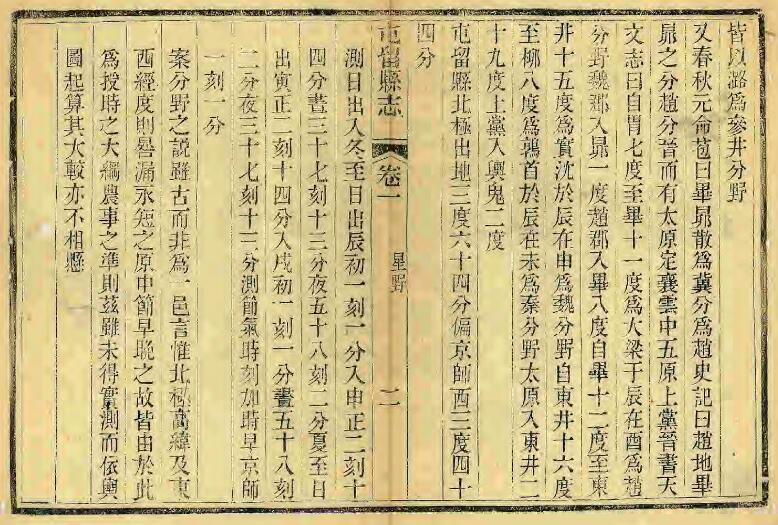 皆以潞為參井分野
又春秋元命苞曰畢昴散為冀分為趙史記曰趙地畢
昴之分趙分晉而有太原定襄雲中五原上黨晉書天
文志曰自胃七度至畢十一度為大梁于辰在酉為趙
分野魏郡入昴一度趙郡入畢八度自畢十二度至東
井十五度為實沈於辰在申為魏分野自東井十六度
至柳八度為鶉首於辰在未為秦分野太原入東井二
十九度上黨入輿鬼二度
屯留縣北極出地三度六十四分偏京師西三度四十
四分
屯留縣志
卷一
星野
二
測日出入冬至日出辰初一刻一分入申正二刻十
四分晝三十七刻十三分夜五十八刻二分夏至日
出寅正二刻十四分入戌初一刻一分晝五十八刻
二分夜三十七刻十三分測節氣時刻加時早京師
一刻一分
案分野之説雖古而非為一邑言惟北極高緯及東
西經度則晷漏永短之原中節早晚之故皆由於此
為授時之大綱農事之準則茲雖未得實測而依輿
圖起算其大較亦不相懸